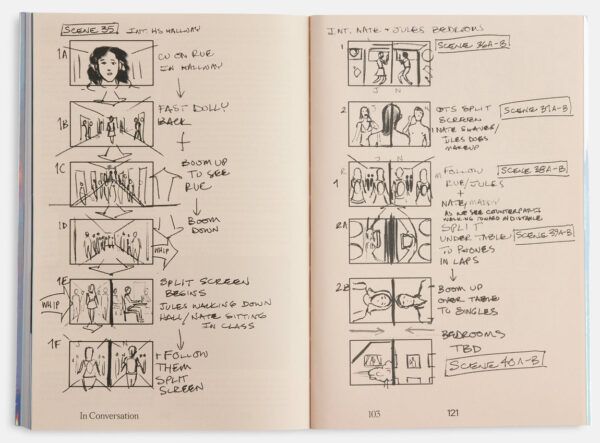 SCENE 35 INT. HS HALLWAY
1A
CU ON RUE
IN HALLWAY
FAST DOLLY
BACK
1B
1C
BOOM UP
TO SEE
RUE
BOOM
DOWN
1D
WHIP
1E
WHIP
SPLIT SCREEN
BEGINS
JULES WALKING DOWN
HALL/NATE SITTING
IN CLASS
1F
J N
FOLLOW
THEM
SPLIT
SCREEN
In Conversation
INT. NATE + JULES BEDROOM
1
SCENE 36A-B
J N
2
OTS SPLIT
SCREEN
NATE SHAVES/
JULES DOES
MAKEUP
SCENE 37A-B
J N
1
R
FOLLOW
RUE/JULES
+
NATE/MADDY
AS WE SEE COUNTERPARTS
WALKING TOWARD IN DISTANCE
SCENE 38A-B
2A
SPLIT
UNDER TABLE
TO PHONES
IN LAPS
SCENE 39A-B
2B
BOOM UP
OVER TABLE
TO SINGLES
BEDROOMS
TBD
SCENE 40A-B
103 121